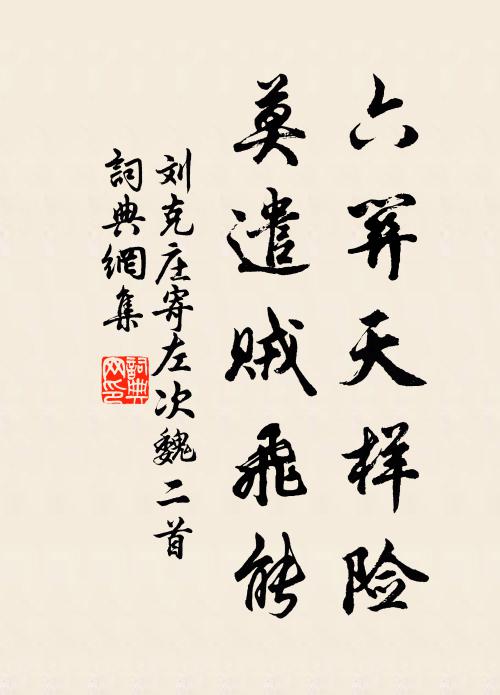 六関天样险
莫遣贼飛能
刘克庄寄左次魏二首
詞典網集
詞典网印